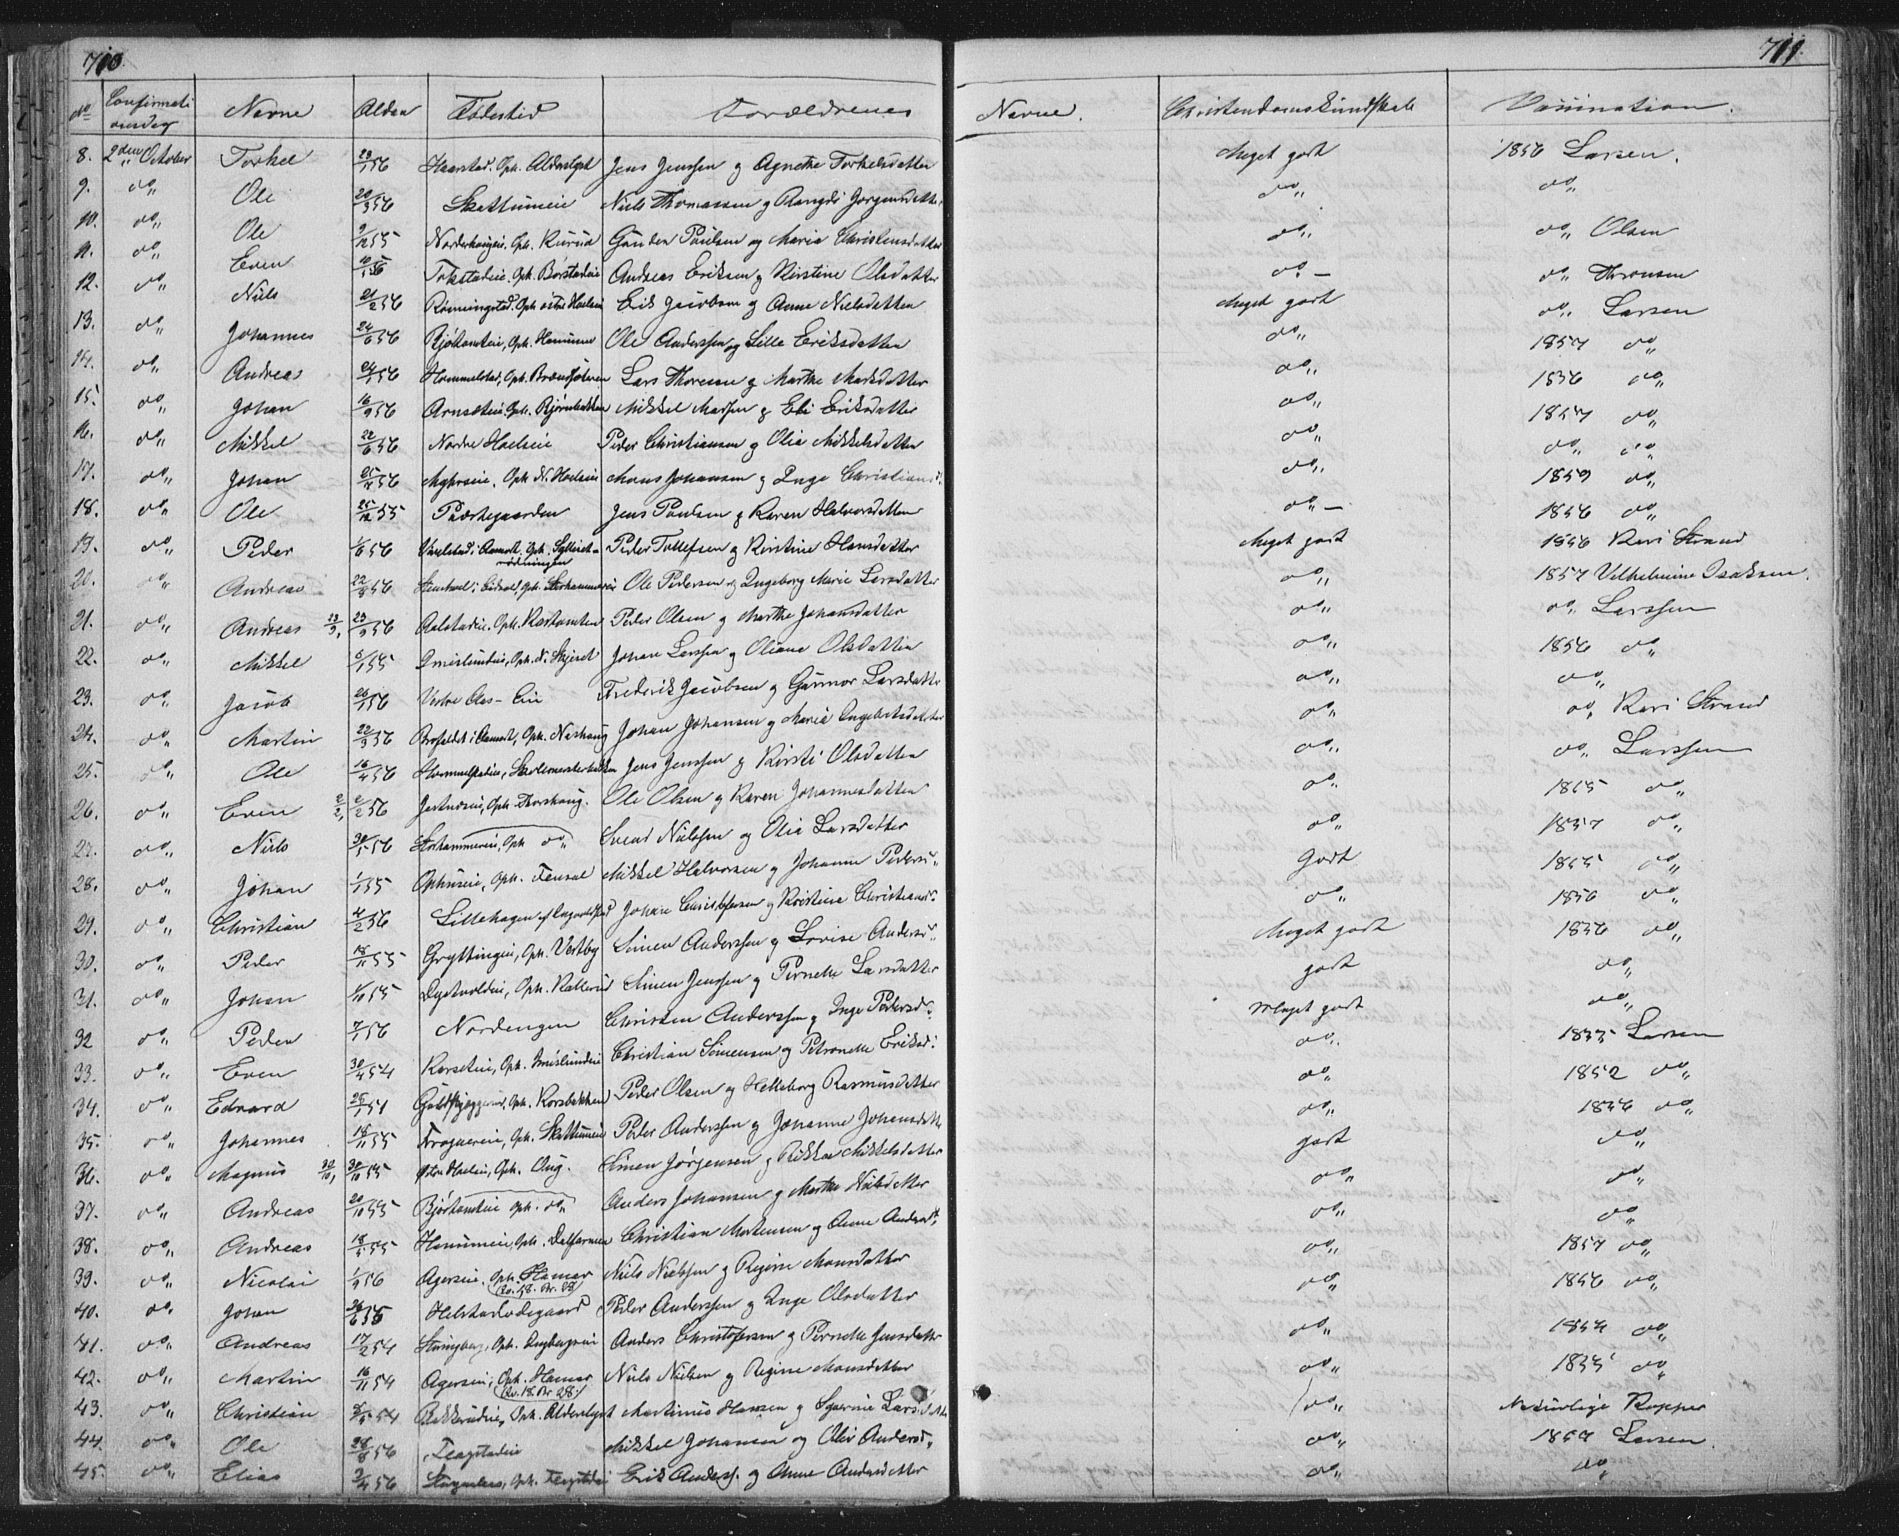 710. 711.
No Confirmationsdag Navne Alder Fødested Forældrenes Navne. Christendomskundskab Vaccination.
8. 2den October Torkel 56 Haarstad, Oph. Alderslyst Jens Jenssen og Agnethe Torkelsdatter Meget godt 1856 Larsen.
9. do„ Ole 20/3 56 Skattumeie Niels Thomassen og Rangdi Jørgensdatter do„ do„
10. do„ Ole 9/12 55 Norderhaugeie, Oph. Rurud Gunder Paulsen og Maria Christensdatter do„ do„ Olsen
11. do„ Even 56 Tokstadeie. Oph. Børstadeie Andreas Eriksen og Kirstine Olsdatter do„ – do„ Thronsen
12. do„ Niels 21/2 56 Rønningstad. Oph østre Hoelseie Erik Jacobsen og Anne Nielsdatter Meget godt do„ Larsen
13. do„ Johannes 24/6 56 Oph. Ole Anderssen og Lille Eriksdatter do„ 1857 do„
14. do„ Andreas 24/1 56 Hommelstad, Oph. Lars Thoresen og Marthe Madsdatter do„ 1856 do„
15. do„ Johan 16/9 56 Arnseteie. Oph. Bjørnbakken Mikkel Madsen og Eli Eriksdatter do„ 1857 do„
16. do„ Mikkel 22/6 56 Nordre Hoelseie Peder Christiansen og Olia Mikkelsdatter do„ do„ do„
17. do„ Johan 56 Myhrseie, Oph. N. Hoelseie Mons Johansen og Inge Christiansd. do„ 1859 do„
18. do„ Ole 25/12 55 Præstegaarden Jens Paulsen og Karen Halvorsdatter do„ – 1856 do„
19. do„ Peder 1/6 56 i Aamodt, Oph. Peder Tollefsen og Kirstine Hansdatter Meget godt 1856 Kari Strand
20. do„ Andreas 22/8 56 i Eidsvold, Oph. Storhammereie Ole Pedersen og Ingeborg Marie Larsdatter do„ 1857 Vilhelmine Isaksen.
21. do„ Andreas 23/9, 23/9 56 Aalstadeie. Oph. Peder Olsen og Marthe Johansdatter do„ do„ Larssen
22. do„ Mikkel 6/1 55 Imislundeie, Oph. N. Skjeset Johan Larssen og Oliane Olsdatter do„ 1856 do„
23. do„ Jacob 56 Vestre Aas-Eie Frederik Jacobsen og Gunnor Larsdatter do„ do„
24. do„ Martin 22/3 56 i Aamodt, Oph. Næshaug Johan Johansen og Maria Ingebretsdatter do„ do„ Kari Strand
25. do„ Ole 16/4 56 Hommelstadeie, Skolemesterbakken Jens Jenssen og Kirsti Olsdatter do„ do„ Larssen
26. do„ Even 2/2, 2/2 56 Jestnæseie, Oph. Torshaug. Ole Olsen og Karen Johannesdatter do„ 1865 do„
27. do„ Niels 30/5 56 Storhammereie, Oph do„ Svend Nielssen og Olia Larsdatter do„ 1857 do„
28. do„ Johan 1/1 55 Ophuseie, Oph. Fensal Mikkel Halvorsen og Johanne Pedersd„ Godt 1855 do„
29. do„ Christian 4/2 56 Lillehagen af Johan Christophersen og Kirstine Christiansd„ do„ 1856 do„
30. do„ Peder 18/11 55 Gryttingeie, Oph. Vestby Simen Anderssen og Lovise Andersd„ Meget godt 1856 do„
31. do„ Johan 1/10 55 Dystvoldeie, Oph. Kallerud Simen Jenssen og Pernelle Larsdatter godt do„
32 do„ Peder 7/1 56 Nordengen Christen Anderssen og Inge Pedersd„ Meget godt do„
33. do„ Even 30/4 54 Korseteie, Oph. Imislundeie Christian Simensen og Petronelle Eriksd: do„ 1855 Larsen
34. do„ Edvard 25/1 54 Oph. Korsbakken Peder Olsen og Helleborg Rasmusdatter do„ 1852 do„
35. do„ Johannes 18/11 55 Frognereie, Oph. Skattumeie Peder Anderssen og Johanne Johansdatter do„ 1856 do„
36. do„ Magnus 30/10, 30/10 55 Østre Hoelseie, Oph. Aug. Simen Jørgensen og Rikka Mikkelsdatter godt do„
37. do„ Andreas 20/10 55 Oph. do„ Anders Johansen og Marthe Nielsdatter do„ do„
38. do„ Andreas 18/5 55 Oph. Dalfarmeie Christian Mortensen og Anne Andersd„ do„ do„
39. do„ Nicolai 1/9 56 Agerseie, Oph. Hamar (Qv. 18. Nr. 28) Niels Nielssen og Regine Monsdatter do„ 1857 do„
40. do„ Johan 26/6 55 Helstadødegaard Peder Anderssen og Inge Olsdatter do„ 1856 do„
41. do„ Andreas 17/2 54 Oph. Anders Christophersen og Pernelle Jensdatter do„ 1854 do„
42. do„ Martin 16/11 54 Agerseie, Oph. Hamar (Qv. 18. Nr 28) Niels Nielsen og Regine Monsdatter do„ 1855 do„
43. do„ Christian 54 Bakkerudeie, Oph. Alderslyst Martinus Hansen og Larsdatter do„ Naturlige Kopper
44. do„ Ole 28/8 56 Flagstadeie Mikkel Johansen og Oliv Andersd„ do„ 1857 Larsen.
45. do„ Elias 2/4 56 Oph. Flagstadeie Erik Anderss. og Anne Andersdatter do„ do„